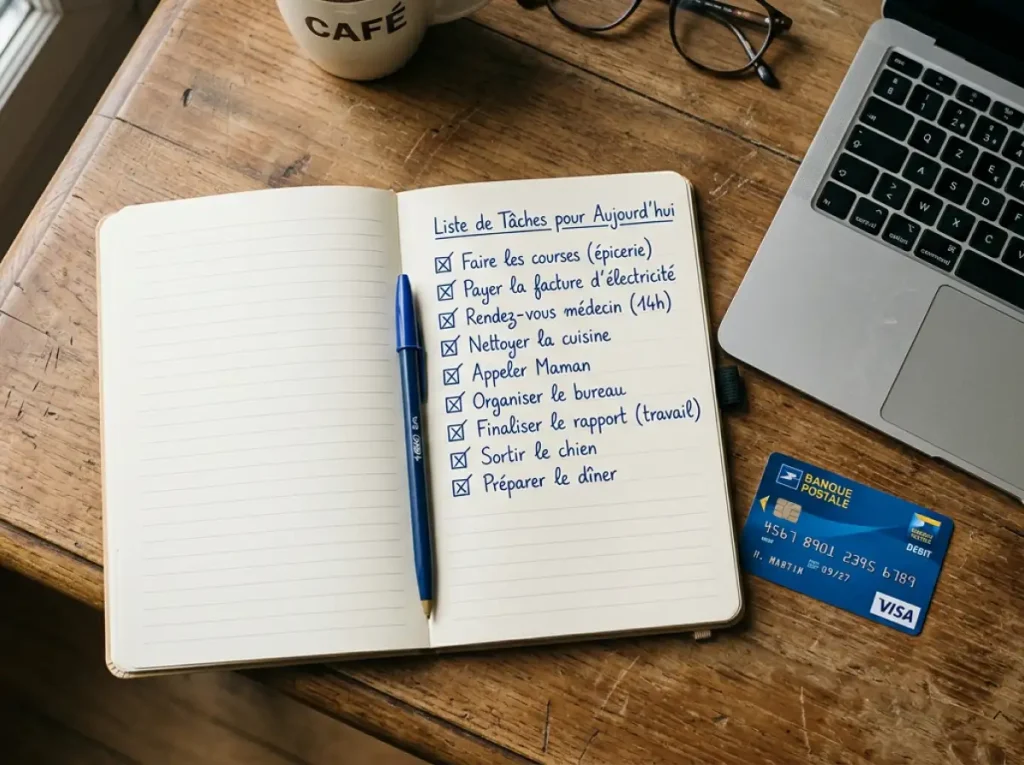 CAFÉ
Liste de Tâches pour Aujourd'hui
Faire les courses (épicerie)
Payer la facture d'électricité
Rendez-vous médecin (14h)
Nettoyer la cuisine
Appeler Maman
Organiser le bureau
Finaliser le rapport (travail)
Sortir le chien
Préparer le dîner
BANQUE
POSTALE
4567 8901 2395 6789
DEBIT
09/27
H. MARTIN
VISA